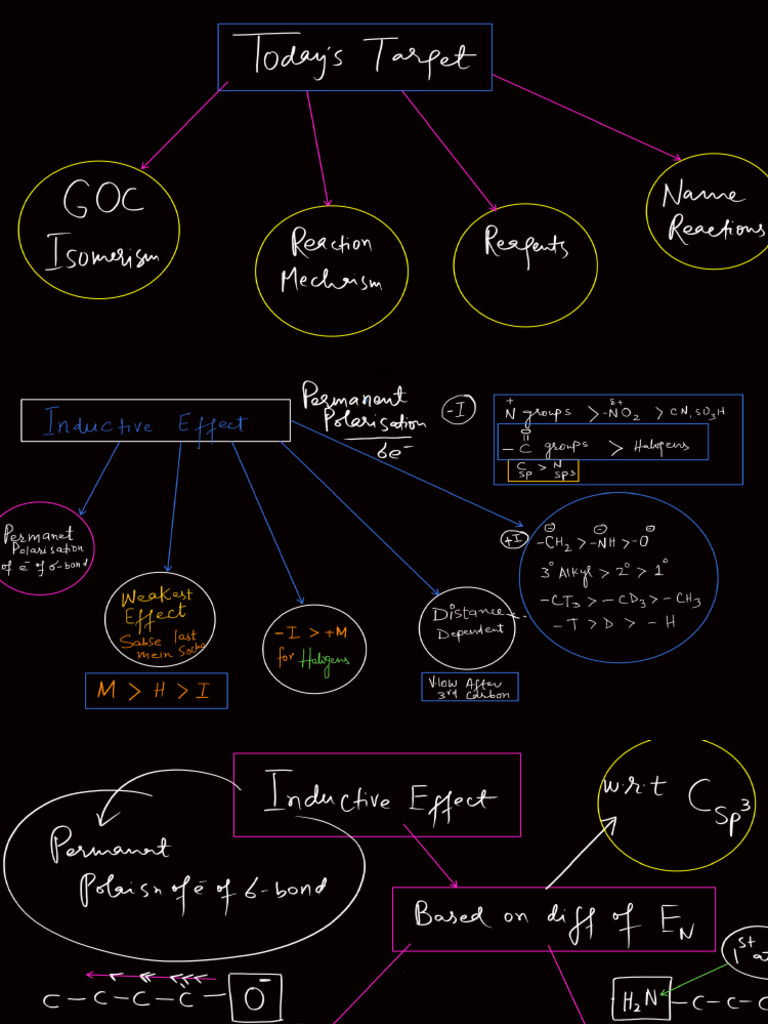 Today's Target
GOC
Isomerism
Reaction
Mechnism
Reagents
Name
Reactions
Inductive Effect
Permanent
Polarisation
σe⁻
-I
N⁺ groups > -NO₂ > CN, SO₃H
-C groups > Halogens
C sp > N sp³
Permanet
Polarisation
of e⁻ of σ-bond
Weakest
Effect
Sabse last
mein socho
M > H > I
-I > +M
for Halogens
Distance
Dependent
V low After
3rd Carbon
+I
-CH₂⁻ > -NH⁻ > -O⁻
3° Alkyl > 2° > 1°
-CT₃ > -CD₃ > -CH₃
-T > D > -H
Inductive Effect
w.r.t C sp³
Permanant
Polaisn of e⁻ of σ-bond
Based on diff of EN
1st at
C-C-C-C-O⁻
H₂N-C-C-C